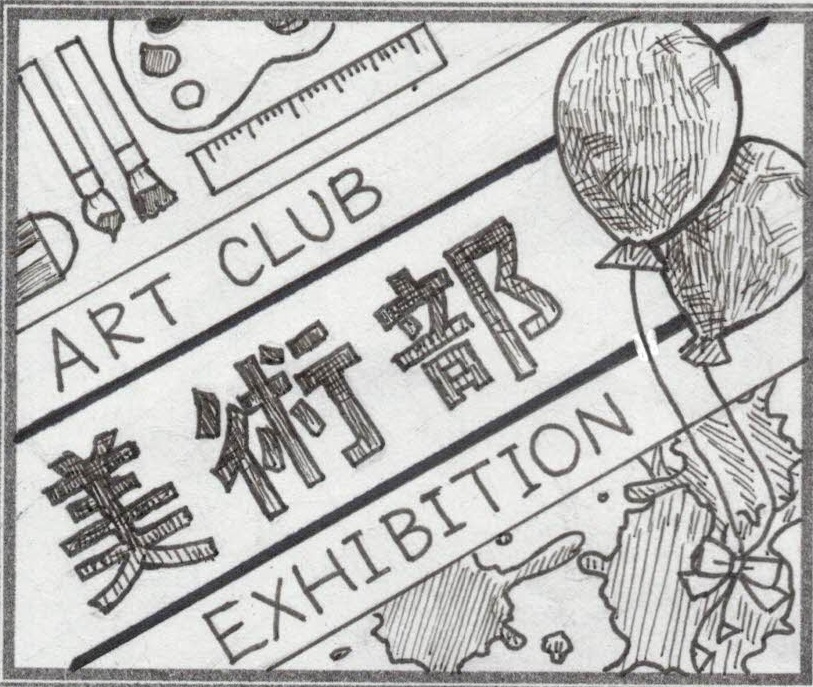 ART CLUB
美術部
EXHIBITION